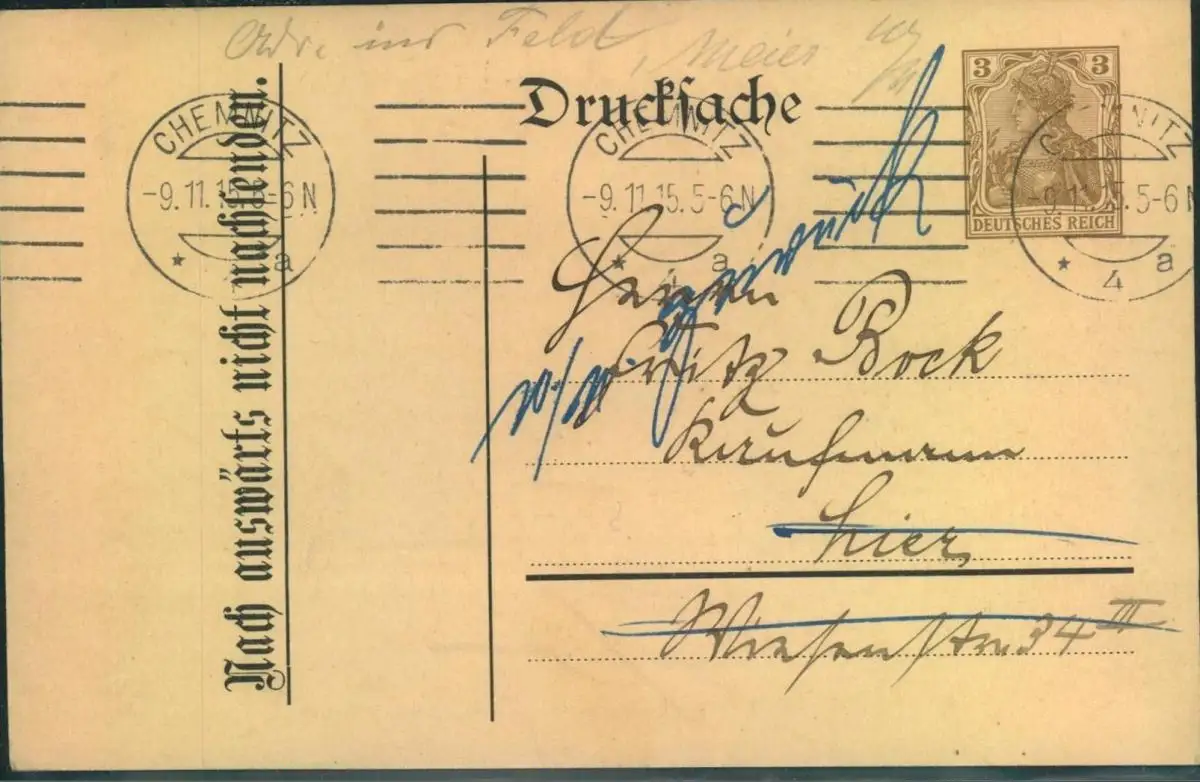 Adr. ins Feld, Meier
Drucksache
3 3
DEUTSCHES REICH
CHEMNITZ
-9.11.15.5-6N
* a
CHEMNITZ
-9.11.15.5-6N
* 4 a
CHEMNITZ
-9.11.15.5-6N
* 4 a
Nach auswärts nicht nachsenden.
zurück
Herrn
Fritz Bock
Kaufmann
hier
Wiesenstr. 34 III